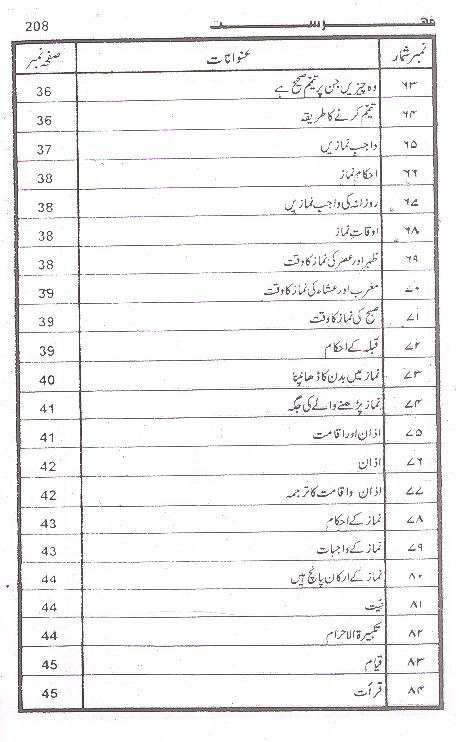 فہرست 208
نمبر شمار عنوانات صفحہ نمبر
۶۳ وہ چیزیں جن پر تیمّم صحیح ہے 36
۶۴ تیمّم کرنے کا طریقہ 36
۶۵ واجب نمازیں 37
۶۶ احکام نماز 38
۶۷ روزانہ کی واجب نمازیں 38
۶۸ اوقات نماز 38
۶۹ ظہر اور عصر کی نماز کا وقت 38
۷۰ مغرب اور عشاء کی نماز کا وقت 39
۷۱ صبح کی نماز کا وقت 39
۷۲ قبلہ کے احکام 39
۷۳ نماز میں بدن کا ڈھانپنا 40
۷۴ نماز پڑھنے والے کی جگہ 41
۷۵ اذان اور اقامت 41
۷۶ اذان 42
۷۷ اذان واقامت کا ترجمہ 42
۷۸ نماز کے احکام 43
۷۹ نماز کے واجبات 43
۸۰ نماز کے ارکان پانچ ہیں 44
۸۱ نیت 44
۸۲ تکبیرۃ الاحرام 44
۸۳ قیام 45
۸۴ قرأت 45